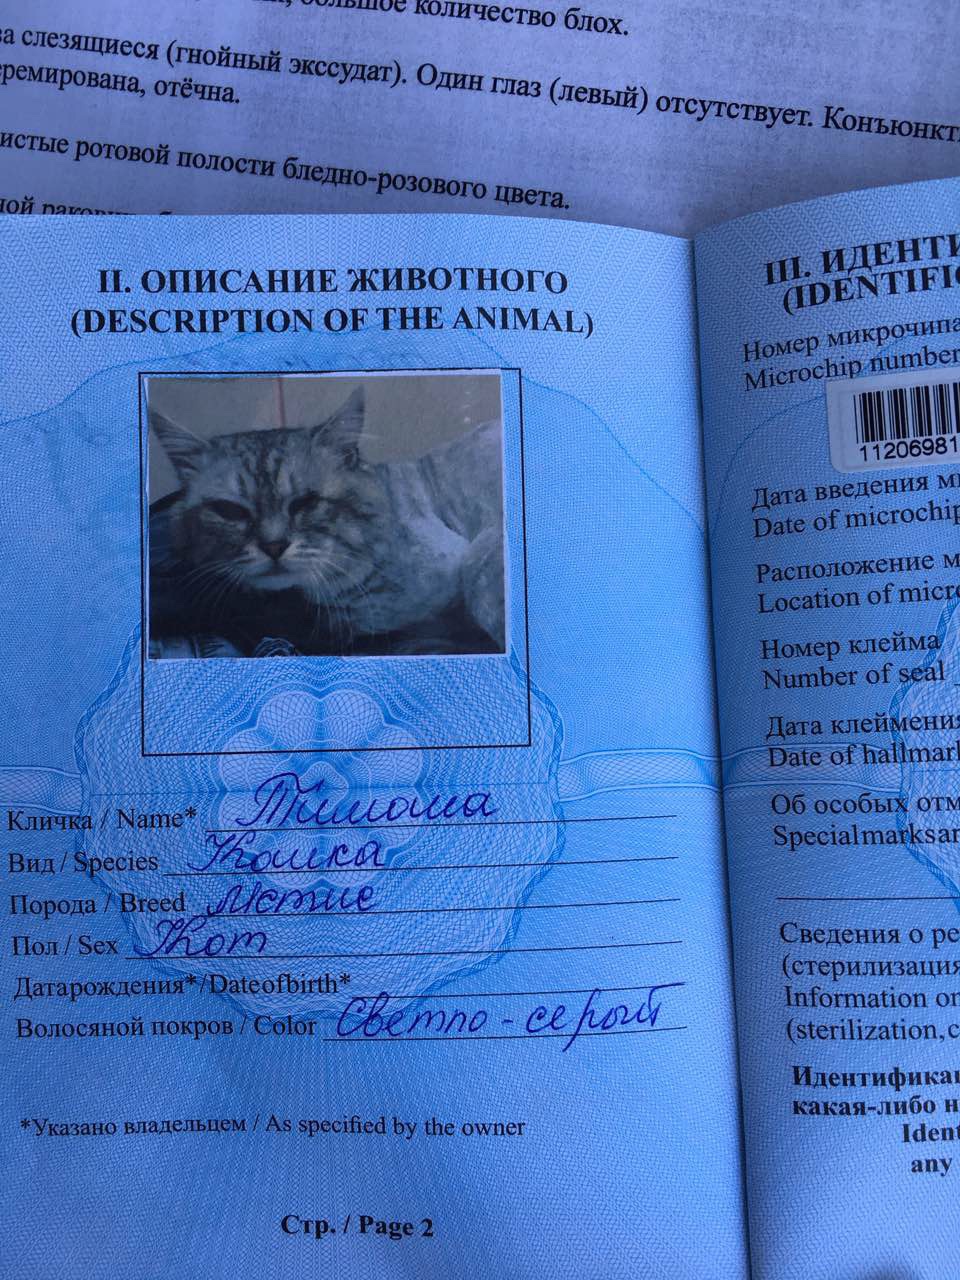 большое количество блох.
слезящиеся (гнойный экссудат). Один глаз (левый) отсутствует.
отёчна.
ротовой полости бледно-розового цвета.
II. ОПИСАНИЕ ЖИВОТНОГО
(DESCRIPTION OF THE ANIMAL)
Кличка / Name* Тимоша
Вид / Species Кошка
Порода / Breed метис
Пол / Sex Кот
Датарождения*/Dateofbirth*
Волосяной покров / Color Светло-серый
*Указано владельцем / As specified by the owner
Стр. / Page 2
III.
Номер микрочипа
Microchip number
11206981
Дата введения
Date of
Расположение
Location of
Номер клейма
Number of seal
Дата клеймения
Date of
Об особых
Сведения о
(стерилизация
Information on
(sterilization,
какая-либо
any